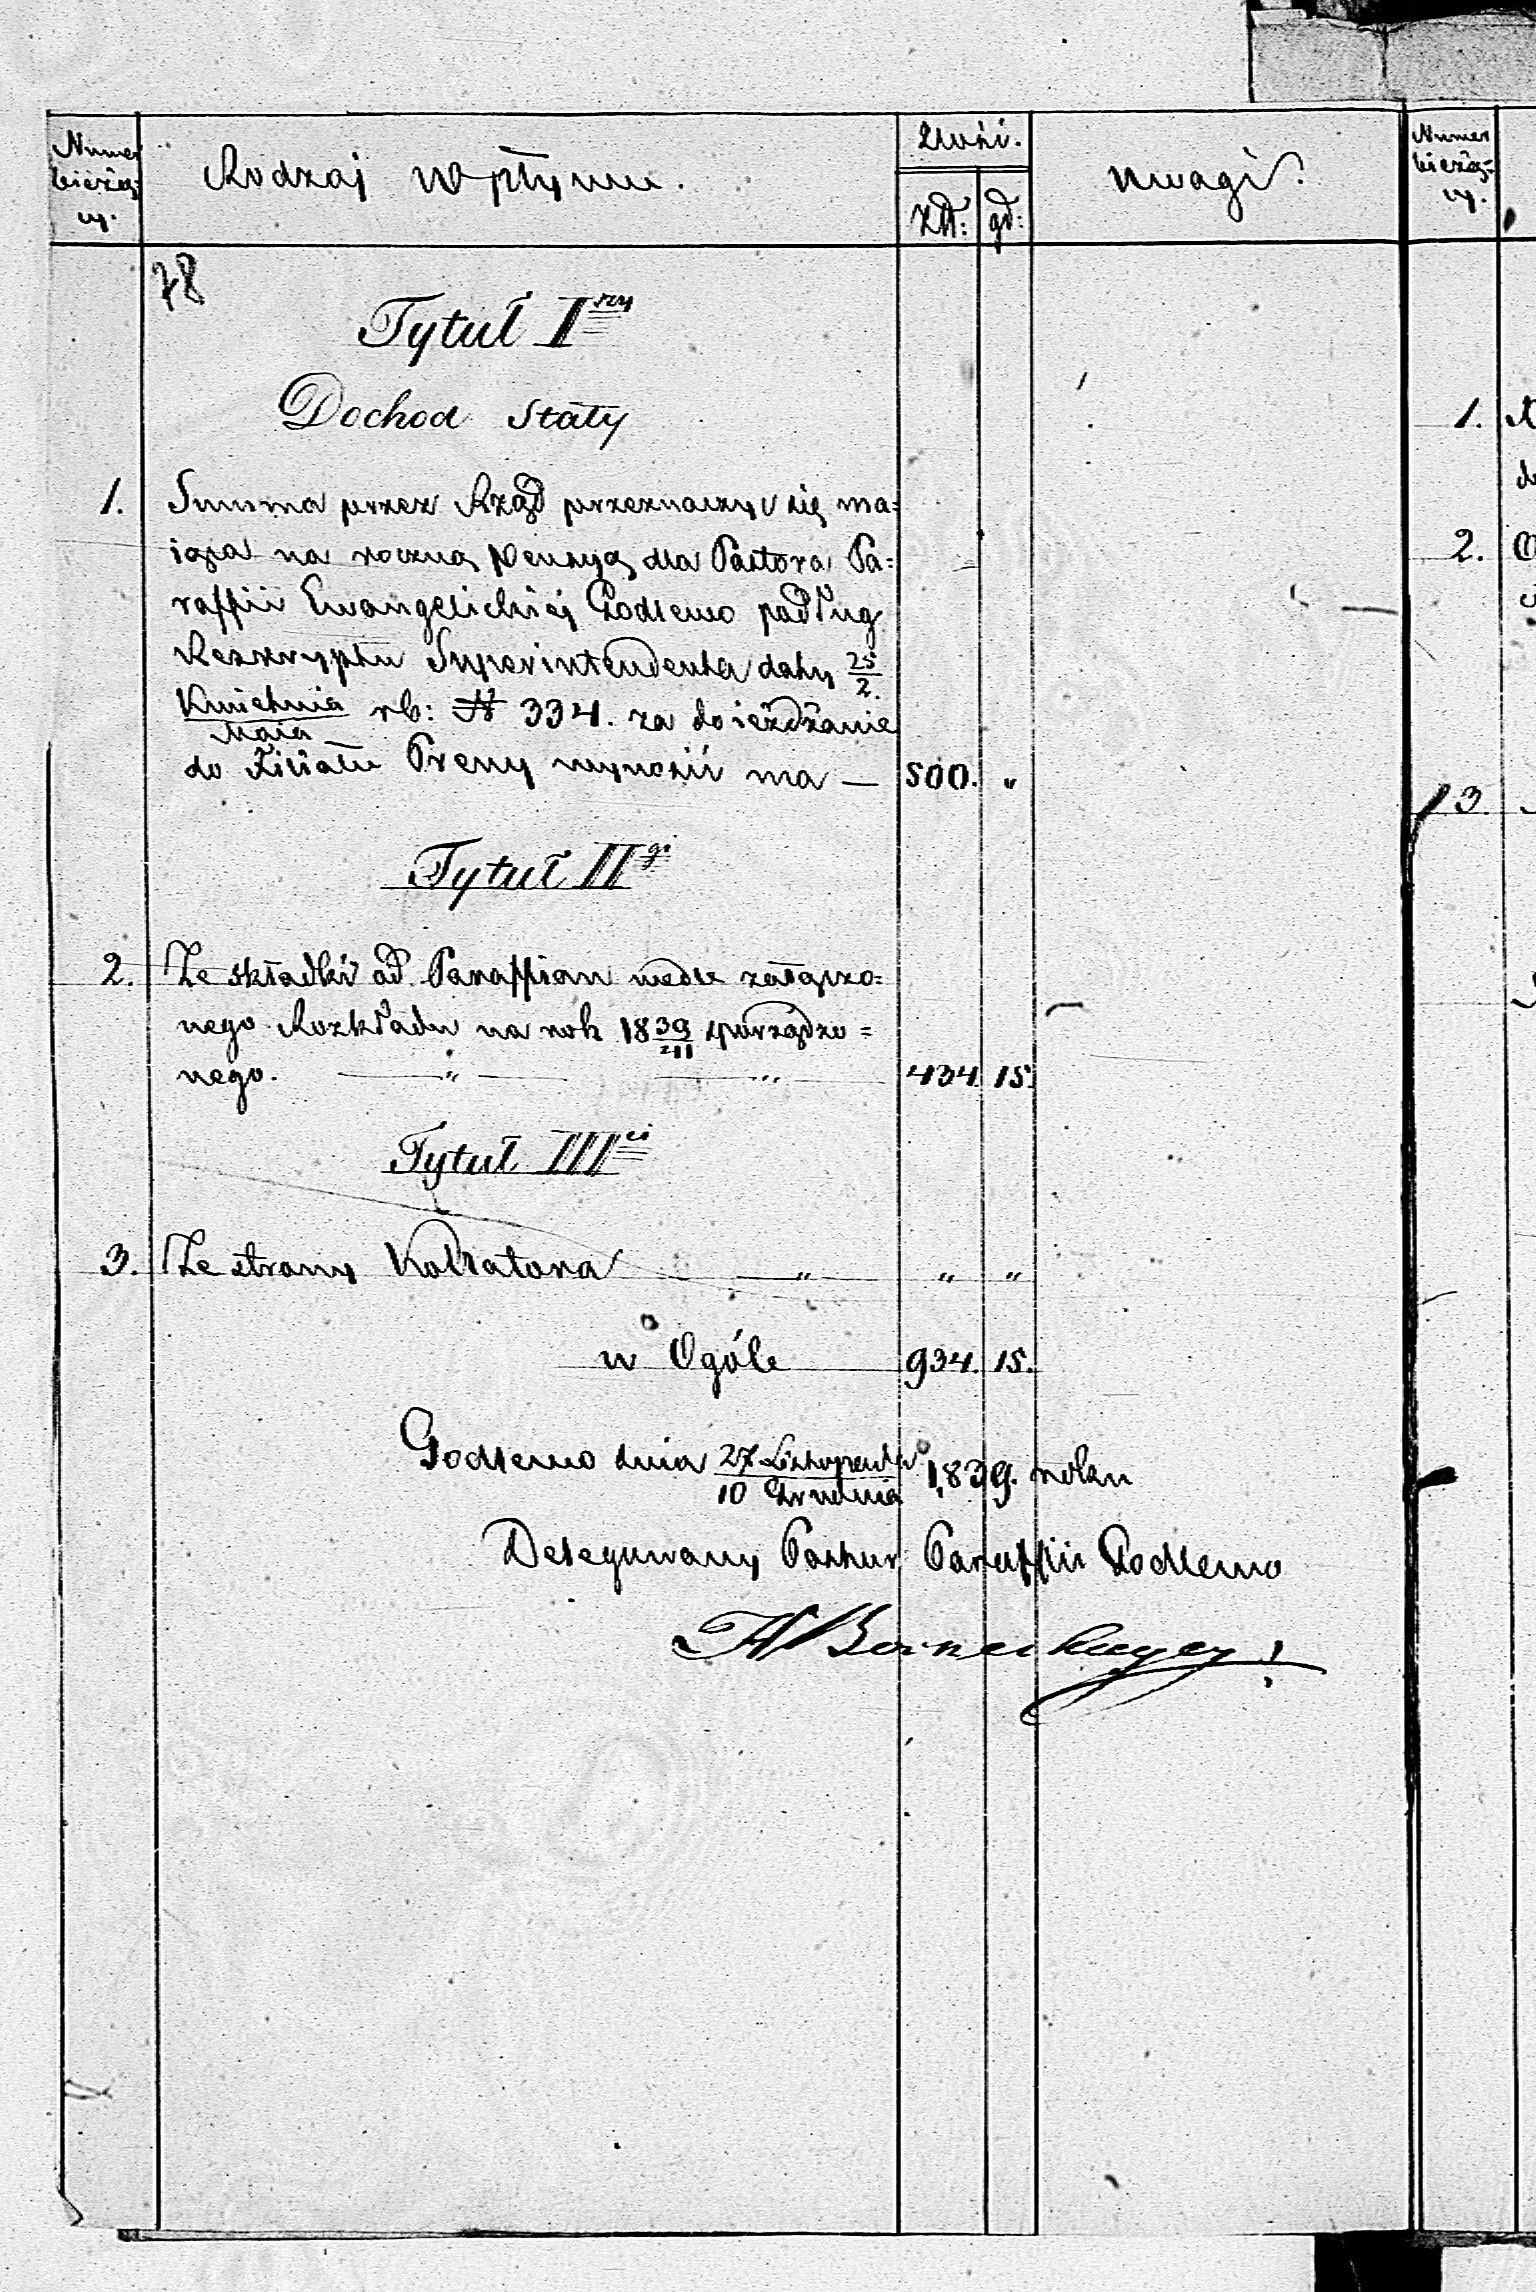 Numer
bieżą-
cy.
Rodzaj Wpływu.
Złt:
gr:
Uwagi.
Numer
bieżą-
cy.
78
Tytuł I szy
Dochod Stały
1. Summa przez Rząd przeznaczyć się ma=
iąca na roczną Pensyą dla Pastora Pa=
raffii Ewangelickiej Godlewo podług
Reskryptu Superintendenta daty 25/2.
Kwietnia/Maia rb: N 334. za doieżdżanie
do Filiału Preny wynosić ma — 500. "
Tytuł II gi
2. Ze składki od Paraffian wedle załączo=
nego Rozkładu na rok 1839/41 sporządzo=
nego. — " — " — 434. 15.
Tytuł III ci
3. Ze strony Kollatora — " — " "
w Ogóle 934. 15.
Godlewo dnia 27 Listopada/10 Grudnia 1839. roku
Delegowany Pastor Paraffii Godlewo
1.
2.
3.